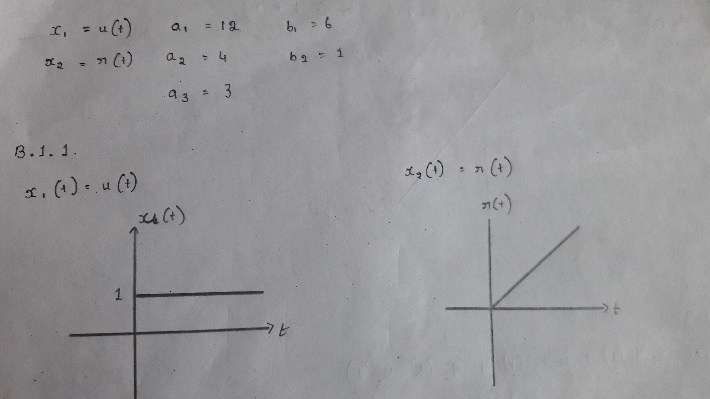 x₁ = u(t) a₁ = 12 b₁ = 6
x₂ = r(t) a₂ = 4 b₂ = 1
a₃ = 3
B.1.1.
x₁(t) = u(t)
x₂(t) = r(t)
x₁(t)
r(t)
1
t
t